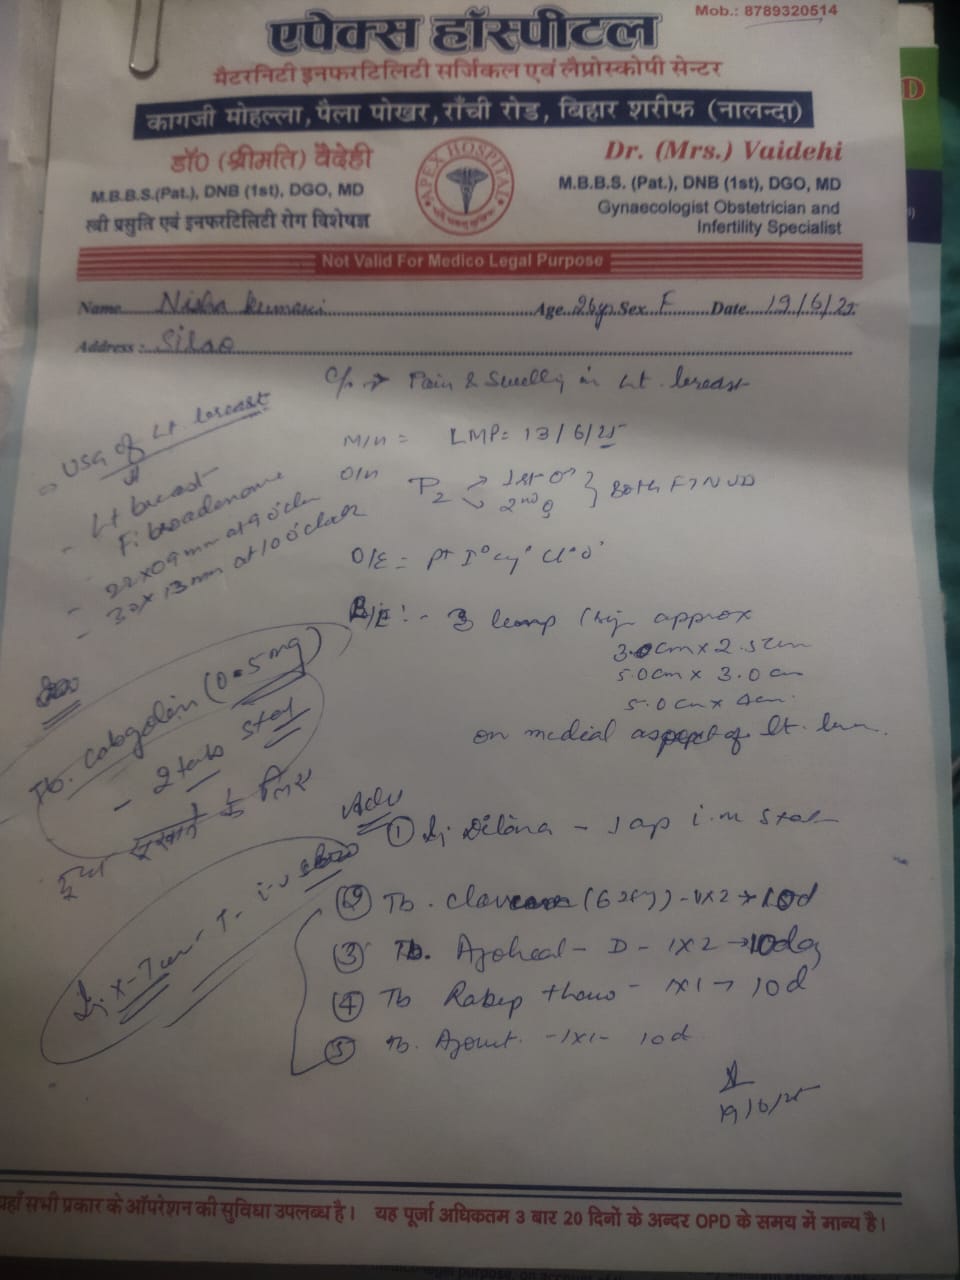 Mob.: 8789320514
एपेक्स हॉस्पीटल
मैटरनिटी इनफरटिलिटी सर्जिकल एवं लैप्रोस्कोपी सेन्टर
कागजी मोहल्ला, पैला पोखर, राँची रोड, बिहार शरीफ (नालन्दा)
डॉ0 (श्रीमति) वैदेही
M.B.B.S.(Pat.), DNB (1st), DGO, MD
स्त्री प्रसुति एवं इनफरटिलिटी रोग विशेषज्ञ
APEX HOSPITAL
Dr. (Mrs.) Vaidehi
M.B.B.S. (Pat.), DNB (1st), DGO, MD
Gynaecologist Obstetrician and
Infertility Specialist
Not Valid For Medico Legal Purpose
Name Nisha Kumari Age 26yr Sex F Date 19/6/25
Address : Silao
C/o → Pain & Swelling in Lt. breast
M/H = LMP= 13/6/25
O/H P2 1st 2nd } Both FTNVD
O/E = Pt
B/E :- 3 lump approx
3.0cm x 2.5cm
5.0cm x 3.0cm
5.0cm x 4cm
on medial aspect of Lt.
USG of Lt. breast
- Lt breast
Fibroadenoma
- 22x09mm at 9 o'clock
- 30x13mm at 10 o'clock
Tb. Cabgolin (0.5mg)
- 2 tab stat
दूध सूखाने के लिए
Adv
① Inj Dilona - 1 ap i.m stat
② Tb. Clav (625) - 1x2 → 10d
③ Tb. Azoheal - D - 1x2 → 10day
④ Tb - 1x1 → 10d
⑤ Tb. - 1x1 - 10d
19/6/25
यहाँ सभी प्रकार के ऑपरेशन की सुविधा उपलब्ध है। यह पूर्जा अधिकतम 3 बार 20 दिनों के अन्दर OPD के समय में मान्य है।